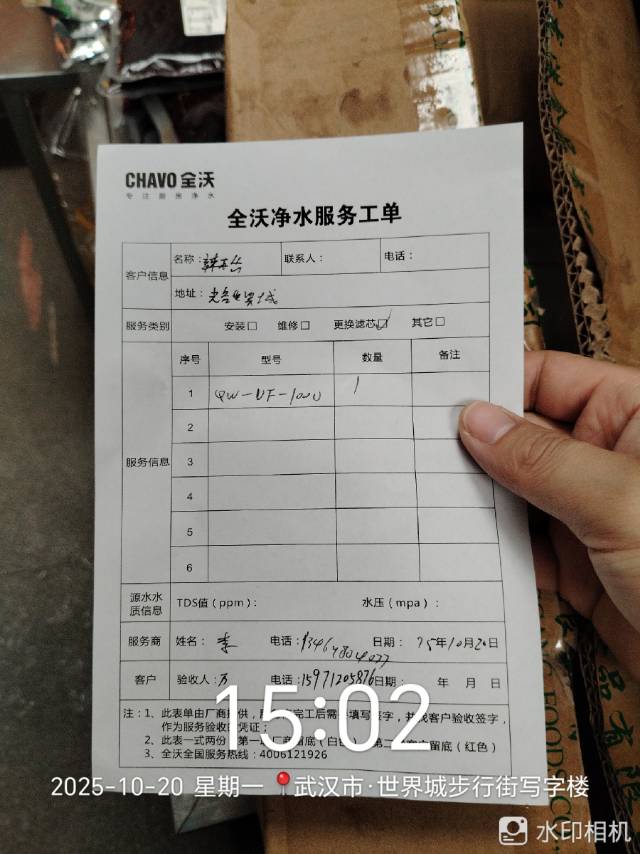 CHAVO 全沃
专注厨房净水
全沃净水服务工单
客户信息
名称： 联系人： 电话：
地址：光谷世界城
服务类别 安装□ 维修□ 更换滤芯☑ 其它□
服务信息
序号 型号 数量 备注
1 QW-UF-1000 1
2
3
4
5
6
源水水质信息 TDS值（ppm）： 水压（mpa）：
服务商 姓名：李 电话： 日期：25年10月20日
客户 验收人：万 电话：15971205876 日期： 年 月 日
注：1、此表单由厂商提供，完工后需填写签字，并找客户验收签字，
作为服务验收的凭证；
2、此表一式两份，第一厂商留底（白色）第二客户留底（红色）
3、全沃全国服务热线：4006121926
15:02
2025-10-20 星期一 武汉市·世界城步行街写字楼
水印相机
YANG FOOD CO.